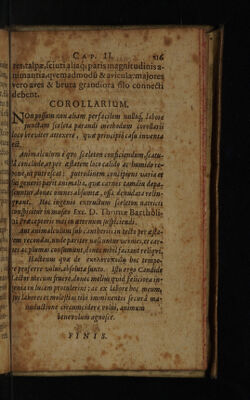 CAP. II. 216
res, talpæ, sciuri aliaq; paris magnitudinis a-
nimantia, quemadmodũ & aviculæ: majores
verò aves & bruta grandiora filo connecti
debent.
COROLLARIUM.
NOn possum non aliam perfacilem nulloq; labore
junctam sceleta parandi methodum corollarii
loco breviter attexere, quæ principiò casu inventa
est.
Animalculum è quo sceleton conficiendum, scatu-
la conclude, at per æstatem loco calido ac humido re-
pone, ut putrescat: putredinem concipiens varia et
sui generis parit animalia, quæ carne tamdiu depa-
scuntur, donec omnes absumta, ossa denudata relin-
quant. Hoc ingenio extructum sceleton natricis
conspicitur in musæo Exc. D. Thomæ Bartholi-
ni Præceptoris mei in æternum suspiciendi.
Aut animalculum sub cantherio in tecto per æsta-
tem reconde, unde pariter nascuntur vermes, et car-
nes ac pinguia consumunt, donec nihil faciant reliqui.
Hactenus quæ de hoc tempo-
re proferre volui, absoluta sunto. Istis ergo Candide
Lector mecum fruere, donec melius quid feliciora in-
genia in lucem protulerint: ac ex labore hoc meum,
quâ labores et molestias tibi imminentes securâ ma-
nuductione circumcidere volui, animum
benevolum agnosce.
FINIS.